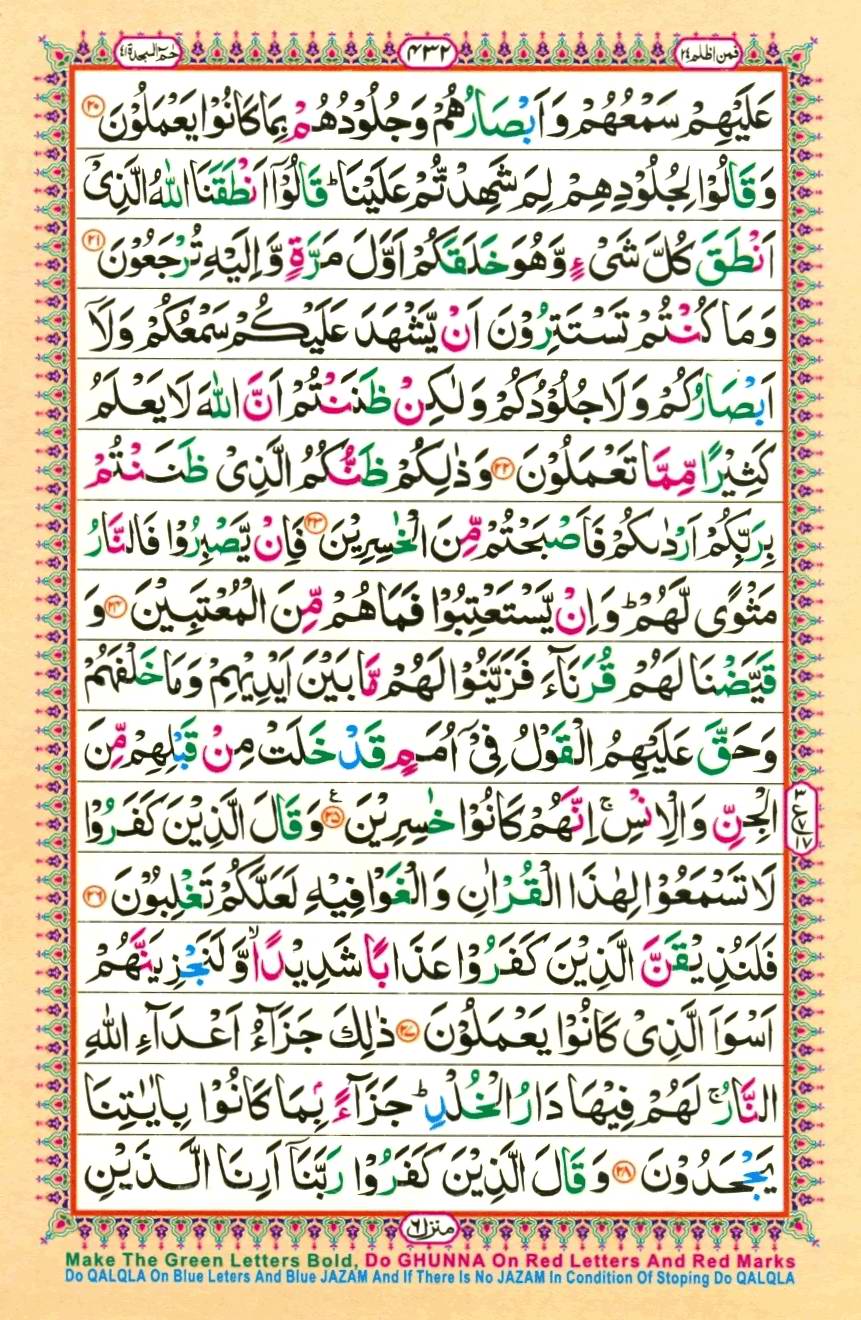 حٰمٓ السجدة ٤١
٤٣٢
فمن اظلم ٢٤
عَلَيْهِمْ سَمْعُهُمْ وَاَبْصَارُهُمْ وَجُلُوْدُهُمْ بِمَا كَانُوْا يَعْمَلُوْنَ ۝٢٠
وَقَالُوْا لِجُلُوْدِهِمْ لِمَ شَهِدْتُّمْ عَلَيْنَا ؕ قَالُوْۤا اَنْطَقَنَا اللّٰهُ الَّذِیْۤ
اَنْطَقَ كُلَّ شَیْءٍ وَّهُوَ خَلَقَكُمْ اَوَّلَ مَرَّةٍ وَّاِلَيْهِ تُرْجَعُوْنَ ۝٢١
وَمَا كُنْتُمْ تَسْتَتِرُوْنَ اَنْ يَّشْهَدَ عَلَيْكُمْ سَمْعُكُمْ وَلَاۤ
اَبْصَارُكُمْ وَلَا جُلُوْدُكُمْ وَلٰكِنْ ظَنَنْتُمْ اَنَّ اللّٰهَ لَا يَعْلَمُ
كَثِيْرًا مِّمَّا تَعْمَلُوْنَ ۝٢٢ وَذٰلِكُمْ ظَنُّكُمُ الَّذِیْ ظَنَنْتُمْ
بِرَبِّكُمْ اَرْدٰىكُمْ فَاَصْبَحْتُمْ مِّنَ الْخٰسِرِيْنَ ۝٢٣ فَاِنْ يَّصْبِرُوْا فَالنَّارُ
مَثْوًى لَّهُمْ ؕ وَاِنْ يَّسْتَعْتِبُوْا فَمَا هُمْ مِّنَ الْمُعْتَبِيْنَ ۝٢٤ وَ
قَيَّضْنَا لَهُمْ قُرَنَآءَ فَزَيَّنُوْا لَهُمْ مَّا بَيْنَ اَيْدِيْهِمْ وَمَا خَلْفَهُمْ
وَحَقَّ عَلَيْهِمُ الْقَوْلُ فِیْۤ اُمَمٍ قَدْ خَلَتْ مِنْ قَبْلِهِمْ مِّنَ
الْجِنِّ وَالْاِنْسِ ۚ اِنَّهُمْ كَانُوْا خٰسِرِيْنَ ۝٢٥ وَقَالَ الَّذِيْنَ كَفَرُوْا
٣
ع
١٧
لَا تَسْمَعُوْا لِهٰذَا الْقُرْاٰنِ وَالْغَوْا فِيْهِ لَعَلَّكُمْ تَغْلِبُوْنَ ۝٢٦
فَلَنُذِيْقَنَّ الَّذِيْنَ كَفَرُوْا عَذَابًا شَدِيْدًا ۙ وَّلَنَجْزِيَنَّهُمْ
اَسْوَاَ الَّذِیْ كَانُوْا يَعْمَلُوْنَ ۝٢٧ ذٰلِكَ جَزَآءُ اَعْدَآءِ اللّٰهِ
النَّارُ ۚ لَهُمْ فِيْهَا دَارُ الْخُلْدِ ؕ جَزَآءًۢ بِمَا كَانُوْا بِاٰيٰتِنَا
يَجْحَدُوْنَ ۝٢٨ وَقَالَ الَّذِيْنَ كَفَرُوْا رَبَّنَاۤ اَرِنَا الَّذَيْنِ
منزل ٦
Make The Green Letters Bold, Do GHUNNA On Red Letters And Red Marks
Do QALQLA On Blue Leters And Blue JAZAM And If There Is No JAZAM In Condition Of Stoping Do QALQLA